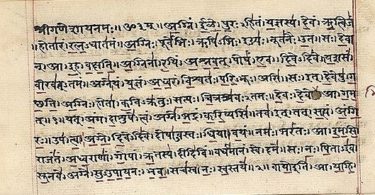 श्रीगणेशायनमः॥ॐ३म्॥अग्निं।ईळे।पुरःऽहितं।यज्ञस्य।देवं।ऋत्विजं
होतारं।रत्नऽधातमं॥अग्निः।पूर्वेभिः।ऋषिऽभिः।ईड्यः।नूतनैः।उत।सः।देवा
न्।आ।इह।वक्षति॥अग्निना।रयिं।अश्नवत्।पोषं।एव।दिवेऽदिवे।यशसं
वीरवत्ऽतमं॥अग्ने।यं।यज्ञं।अध्वरं।विश्वतः।परिऽभूः।असि।सः।इत्।देवेषु।ग
च्छति॥अग्निः।होता।कविऽक्रतुः।सत्यः।चित्रश्रवःऽतमः।देवः।देवेभिः।आ।गम
त्॥१॥यत्।अंग।दाशुषे।त्वं।अग्ने।भद्रं।करिष्यसि।तव।इत्।तत्।सत्यं।अंगि
रः॥उप।त्वा।अग्ने।दिवेऽदिवे।दोषाऽवस्तः।धिया।वयं।नमः।भरंतः।आ।इमसि
राजंतं।अध्वराणां।गोपां।ऋतस्य।दीदिविं।वर्धमानं।स्वे।दमे॥सः।नः।पिताऽइव
सूनवे।अग्ने।सुऽउपायनः।भव।सचस्व।नः।स्वस्तये॥२॥वायो इति।आ।याहि